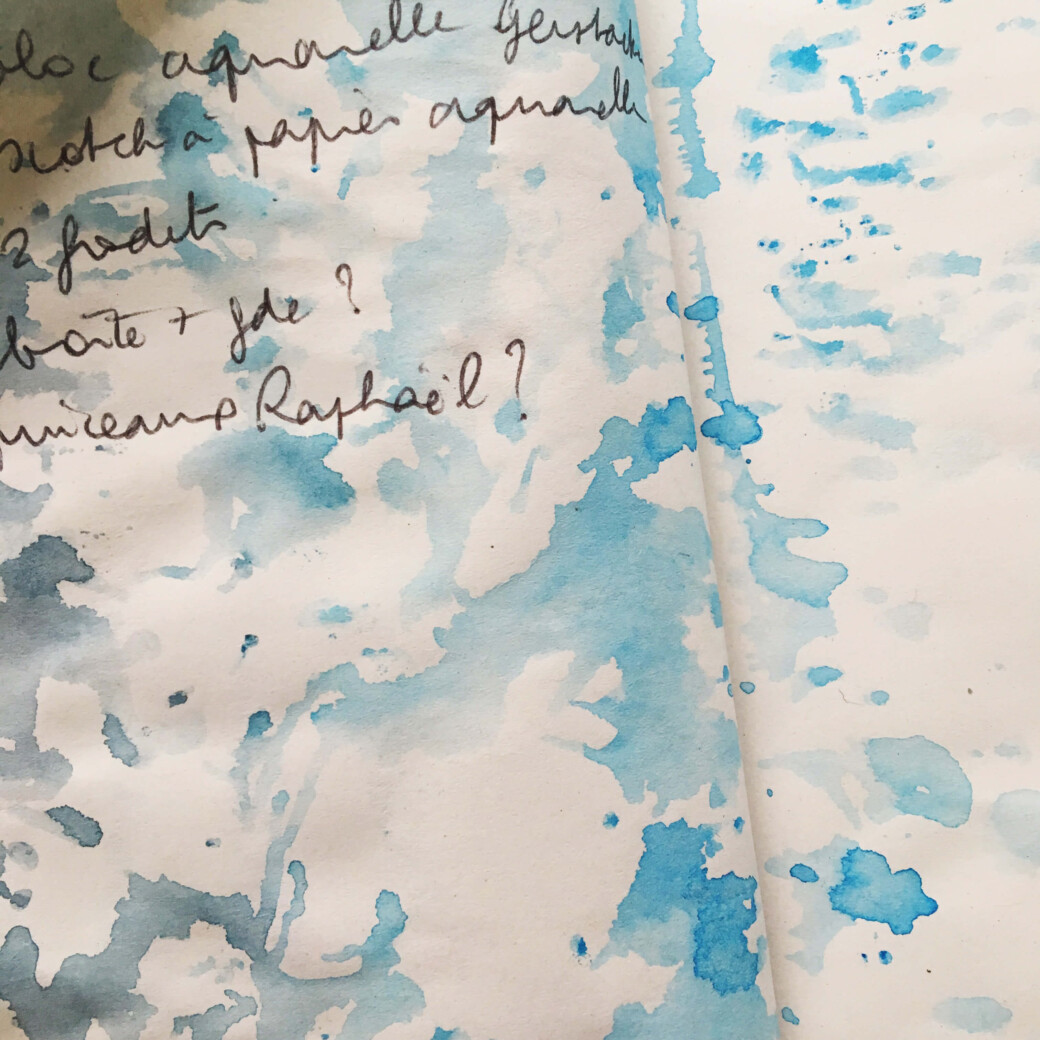 bloc aquarelle Gerstaecker
scotch à papier aquarelle
2 godets
boîte + gde ?
pinceaux Raphaël ?